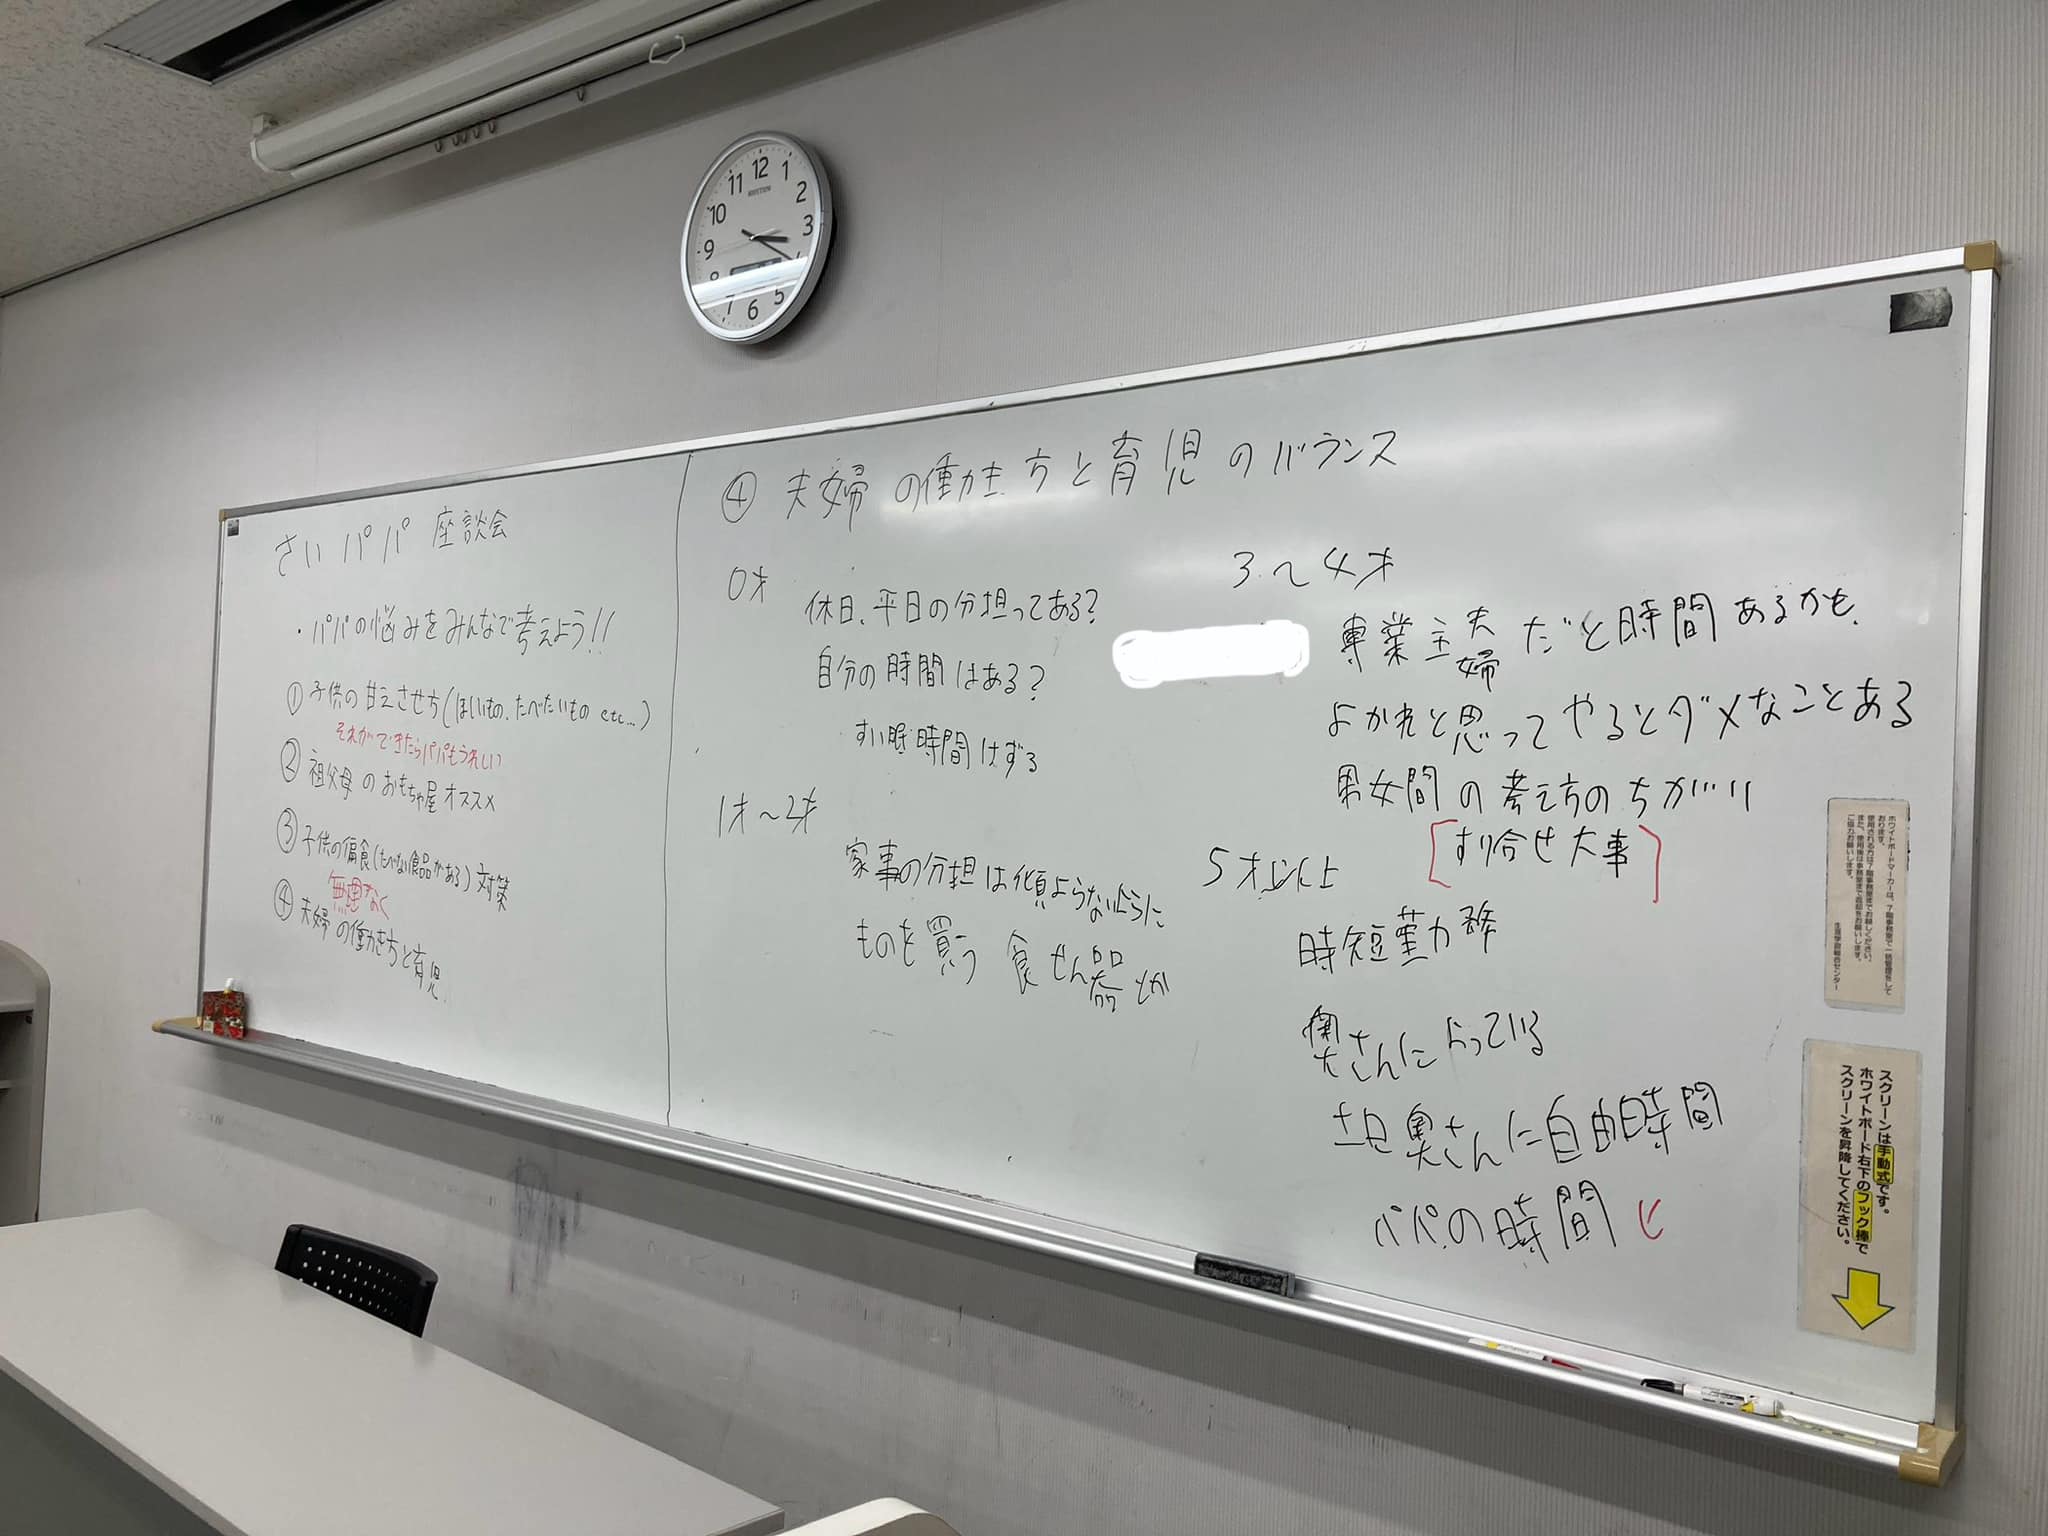 さいパパ 座談会
・パパの悩みをみんなで考えよう!!
① 子供の甘えさせ方(ほしいもの、たべたいもの etc...)
それができたらパパもうれしい
② 祖父母のおもちゃ屋オススメ
③ 子供の偏食(たべない食品がある)対策
無理なく
④ 夫婦の働き方と育児
④ 夫婦の働き方と育児のバランス
0才
休日、平日の分担ってある?
自分の時間はある?
すい眠時間けずる
1才〜2才
家事の分担は偏よらないように
ものを買う 食せん器とか
3〜4才
専業主夫婦だと時間あるかも
よかれと思ってやるとダメなことある
男女間の考え方のちがい
[すり合せ大事]
5才以上
時短勤務
奥さんによっている
土日奥さんに自由時間
パパの時間
RHYTHM
12 1 2 3 5 6 7 8 9 10 11
ホワイトボードマーカーは、7階事務室で一括管理をして
おります。
使用される方は7階事務室までお越しください。
また、使用後は事務室まで返却をお願いします。
ご協力お願いします。
生涯学習総合センター
スクリーンは手動式です。
ホワイトボード右下のフック棒で
スクリーンを昇降してください。